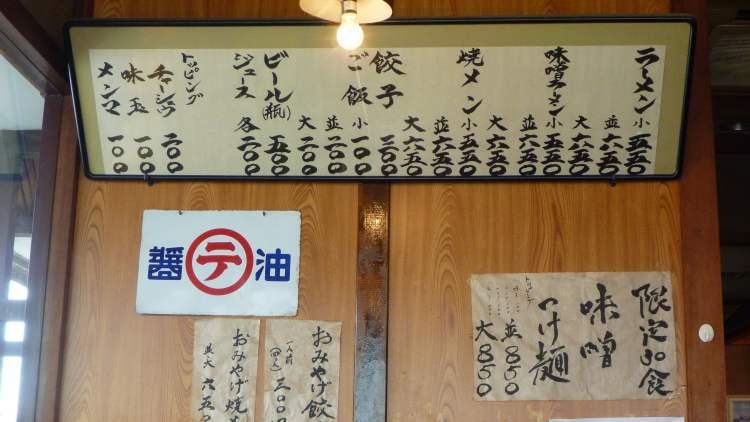 ラーメン 小 五五〇
並 六〇〇
大 六五〇
味噌ラーメン 小 五五〇
並 六〇〇
大 六五〇
焼メン 小 五五〇
並 六〇〇
大 六五〇
餃子 三〇〇
ご飯 小 一〇〇
並
大 二〇〇
ビール(瓶) 五〇〇
ジュース 各 二〇〇
トッピング
チャーシウ 二〇〇
味玉 一〇〇
メンマ 一〇〇
醤 テ 油
限定30食
味噌
つけ麺
並 850
大 850
トッピング
おみやげ餃
一人前 三〇〇
おみやげ焼
並大 六五〇